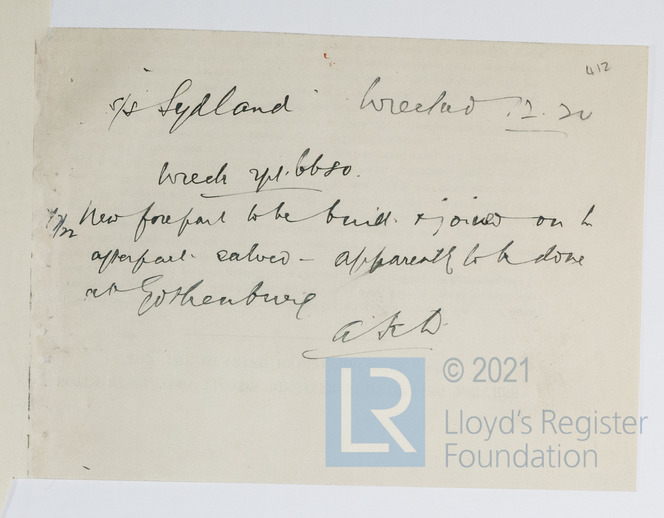 412
s/s "Sydland" Wrecked .2.20
Wreck rpt. 6680.
New forepart to be build. & joined on to
afterpart salved - apparently to be done
at Gothenburg
LR
© 2021
Lloyd's Register
Foundation